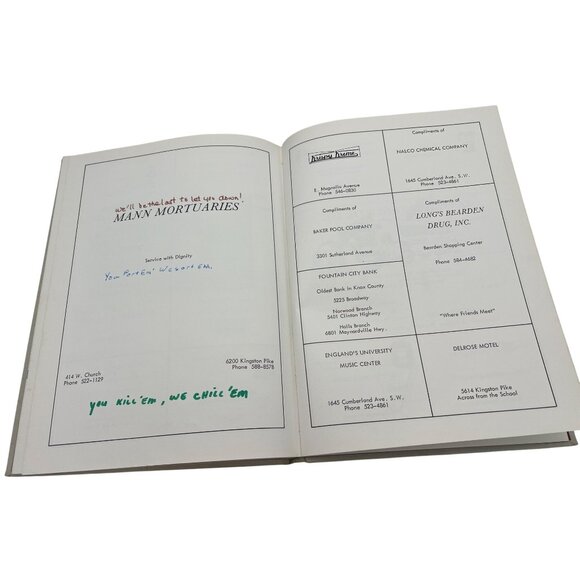 we'll be the last to let you down!
MANN MORTUARIES
Service with Dignity
414 W. Church
Phone 522-1129
6200 Kingston Pike
Phone 588-8578
YOU KILL'EM, WE CHILL'EM
Krispy Kreme
E. Magnolia Avenue
Phone 546-0830
Compliments of
NALCO CHEMICAL COMPANY
1645 Cumberland Ave., S.W.
Phone 523-4861
Compliments of
BAKER POOL COMPANY
3301 Sutherland Avenue
Compliments of
LONG'S BEARDEN
DRUG, INC.
Bearden Shopping Center
Phone 584-4682
"Where Friends Meet"
FOUNTAIN CITY BANK
Oldest Bank in Knox County
5225 Broadway
Norwood Branch
5401 Clinton Highway
Halls Branch
6801 Maynardville Hwy.
ENGLAND'S UNIVERSITY
MUSIC CENTER
1645 Cumberland Ave., S.W.
Phone 523-4861
DELROSE MOTEL
5614 Kingston Pike
Across from the School